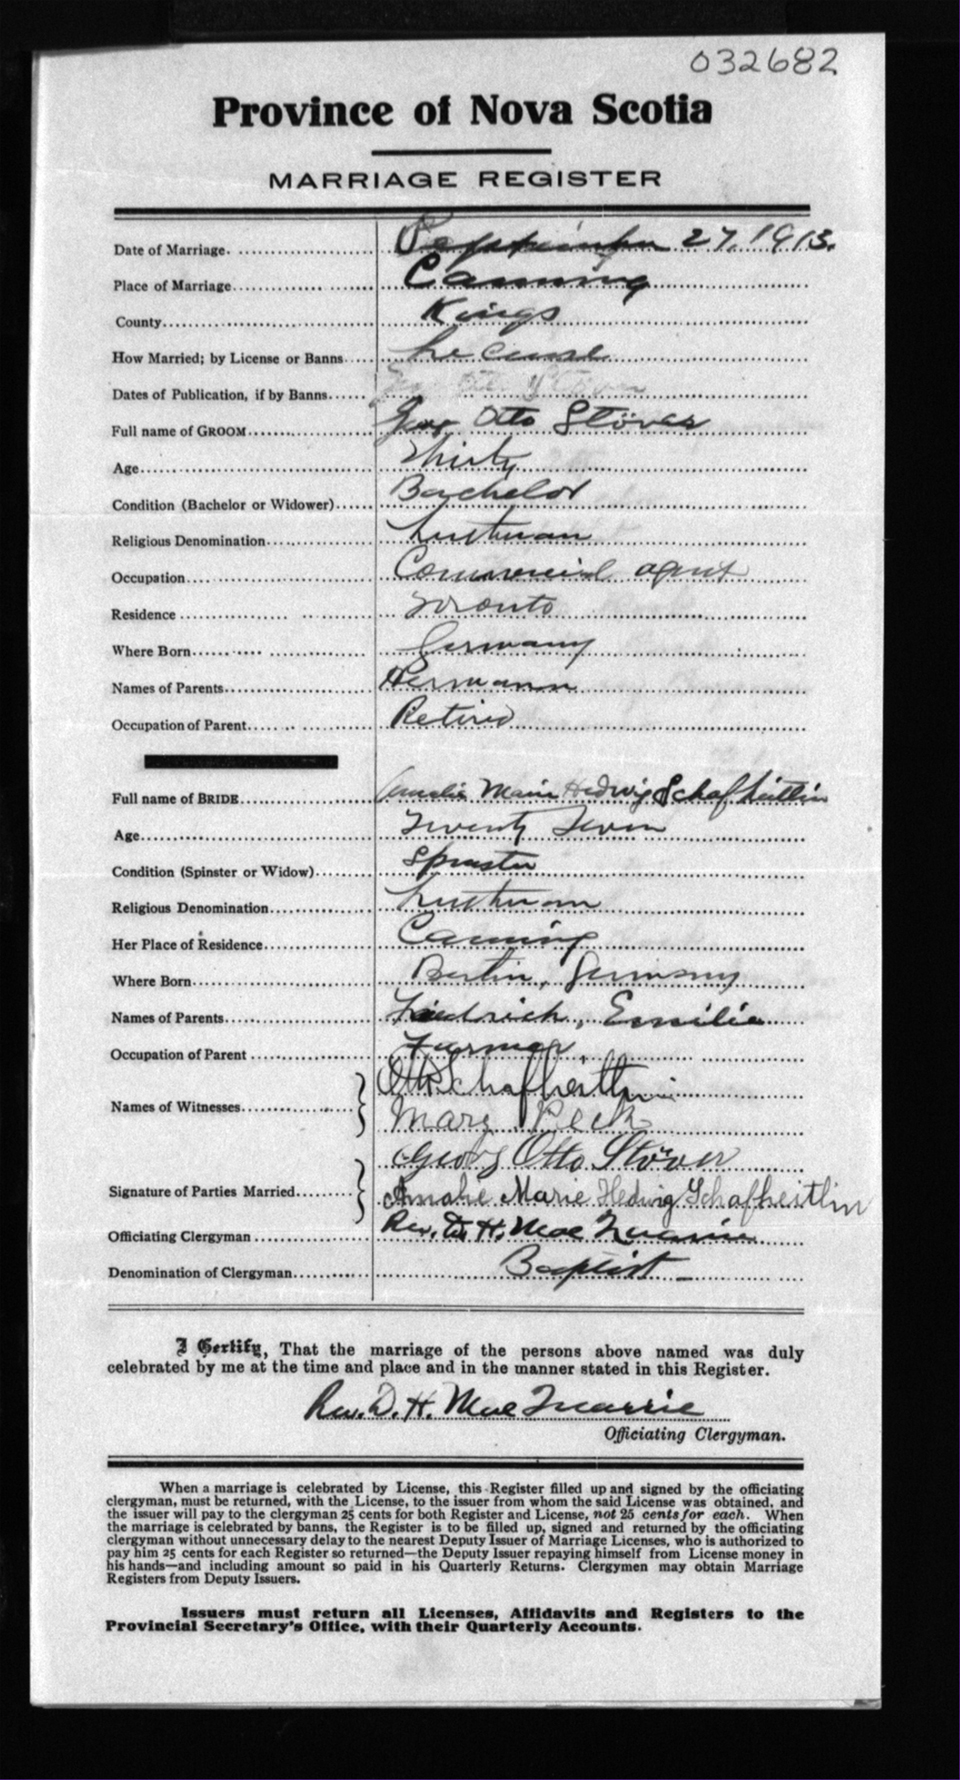 032682
Province of Nova Scotia
MARRIAGE REGISTER
Date of Marriage. September 27, 1913.
Place of Marriage Canning
County Kings
How Married; by License or Banns License
Dates of Publication, if by Banns
Full name of GROOM Otto Stöver
Age Thirty
Condition (Bachelor or Widower) Bachelor
Religious Denomination Lutheran
Occupation Commercial agent
Residence Toronto
Where Born Germany
Names of Parents Hermann
Occupation of Parent Retired
Full name of BRIDE Amalie Marie Hedwig Schafheitlin
Age Twenty Seven
Condition (Spinster or Widow) Spinster
Religious Denomination Lutheran
Her Place of Residence Canning
Where Born Berlin, Germany
Names of Parents Friedrich, Emilie
Occupation of Parent Farmer
Names of Witnesses Schafheitlin
Mary Beck
Signature of Parties Married Georg Otto Stöver
Amalie Marie Hedwig Schafheitlin
Officiating Clergyman Rev. D. H. MacQuarrie
Denomination of Clergyman Baptist
I Certify, That the marriage of the persons above named was duly
celebrated by me at the time and place and in the manner stated in this Register.
Rev. D. H. MacQuarrie
Officiating Clergyman.
When a marriage is celebrated by License, this Register filled up and signed by the officiating
clergyman, must be returned, with the License, to the issuer from whom the said License was obtained, and
the issuer will pay to the clergyman 25 cents for both Register and License, not 25 cents for each. When
the marriage is celebrated by banns, the Register is to be filled up, signed and returned by the officiating
clergyman without unnecessary delay to the nearest Deputy Issuer of Marriage Licenses, who is authorized to
pay him 25 cents for each Register so returned—the Deputy Issuer repaying himself from License money in
his hands—and including amount so paid in his Quarterly Returns. Clergymen may obtain Marriage
Registers from Deputy Issuers.
Issuers must return all Licenses, Affidavits and Registers to the
Provincial Secretary's Office, with their Quarterly Accounts.